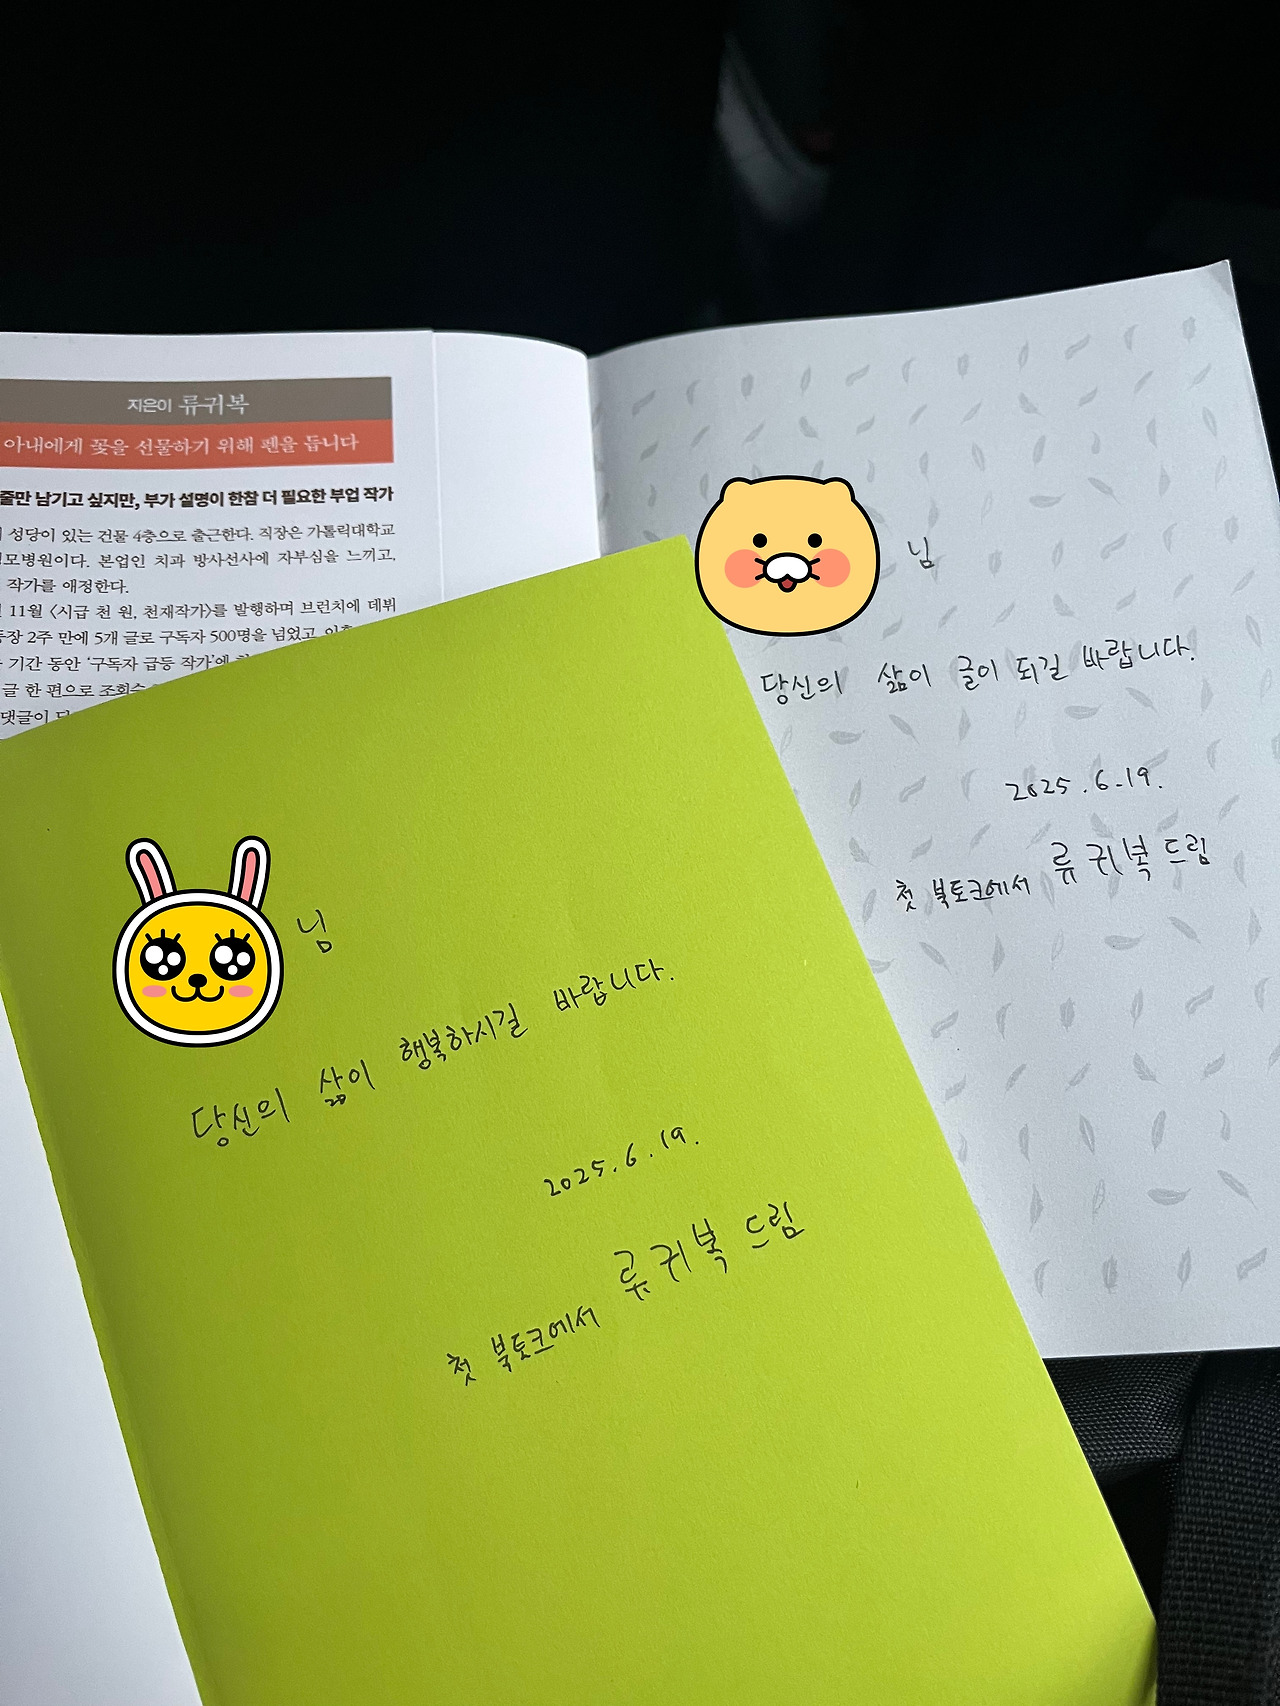 지은이 류귀복
아내에게 꽃을 선물하기 위해 펜을 듭니다
줄만 남기고 싶지만, 부가 설명이 한참 더 필요한 부업 작가
성당이 있는 건물 4층으로 출근한다. 직장은 가톨릭대학교
모병원이다. 본업인 치과 방사선사에 자부심을 느끼고,
작가를 애정한다.
11월 〈시급 천 원, 천재작가〉를 발행하며 브런치에 데뷔
등장 2주 만에 5개 글로 구독자 500명을 넘었고
기간 동안 ‘구독자 급등 작가’에
글 한 편으로 조회수
댓글이
님
당신의 삶이 글이 되길 바랍니다.
2025.6.19.
첫 북토크에서 류귀복 드림
님
당신의 삶이 행복하시길 바랍니다.
2025.6.19.
첫 북토크에서 류귀복 드림